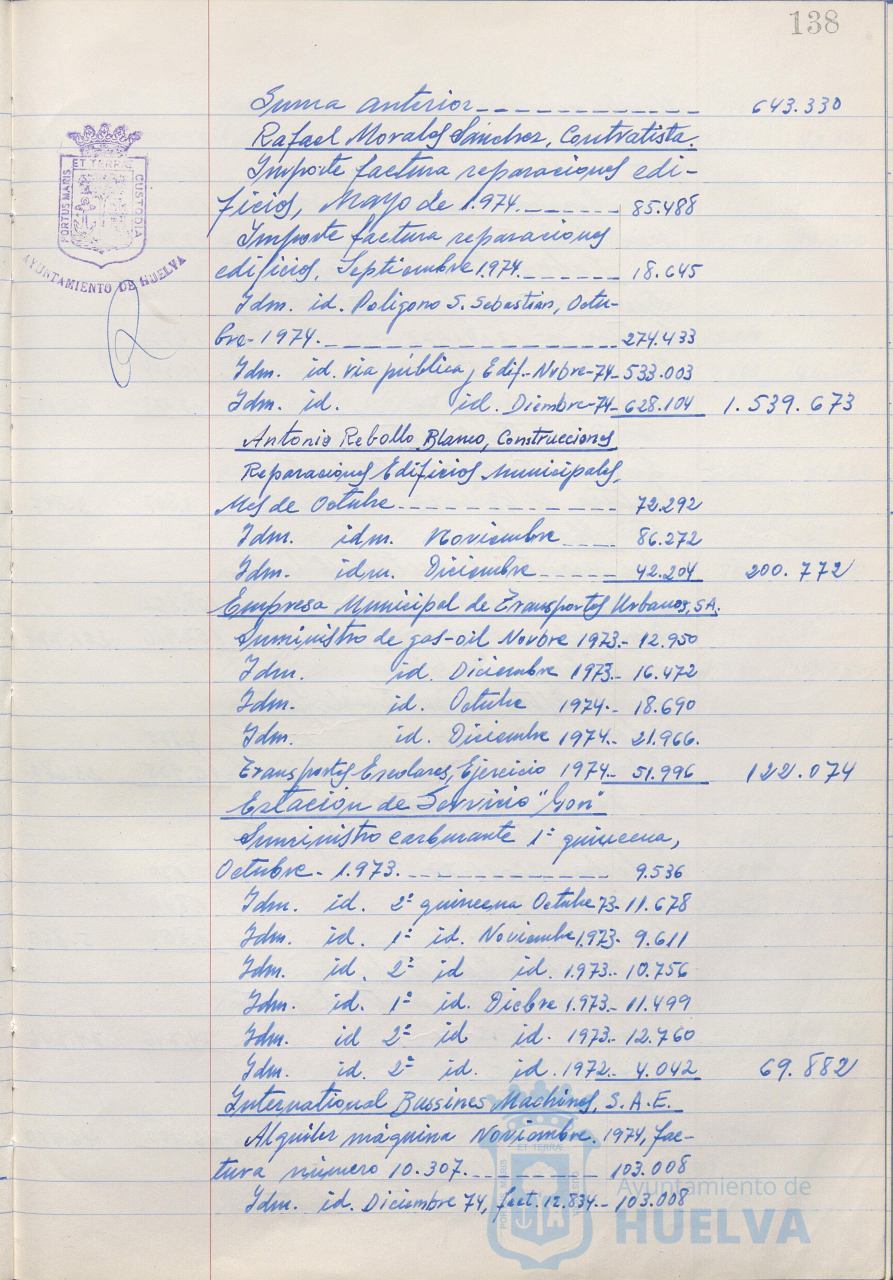 138
Suma anterior ------------ 643.330
Rafael Morales Sánchez, Contratista.
Importe factura reparaciones edi-
ficios, Mayo de 1.974. ------ 85.488
Importe factura reparaciones
edificios, Septiembre 1.974. ------ 18.645
Idm. id. Poligono S. Sebastian, Octu-
bre - 1974. ---------------- 274.433
Idm. id. via pública y Edif.- Nvbre-74- 533.003
Idm. id. id. Diciembre-74- 628.104 1.539.673
Antonio Rebollo Blanco, Construcciones
Reparaciones Edificios Municipales,
Mes de Octubre ------------ 72.292
Idm. idm. Noviembre ---- 86.272
Idm. idm. Diciembre ----- 42.204 200.772
Empresa Municipal de Transportes Urbanos, SA.
Suministro de gas-oil Novbre 1973.- 12.950
Idm. id. Diciembre 1973.- 16.472
Idm. id. Octubre 1974.- 18.690
Idm. id. Diciembre 1974.- 21.966.
Transportes Escolares, Ejercicio 1974.- 51.996 122.074
Estación de Servicio "Gon"
Suministro carburante 1ª quincena,
Octubre - 1.973. ------------ 9.536
Idm. id. 2ª quincena Octubre 73- 11.678
Idm. id. 1ª id. Noviembre 1.973- 9.611
Idm. id. 2ª id id. 1.973.- 10.756
Idm. id. 1ª id. Dicbre 1.973.- 11.499
Idm. id 2ª id id. 1973.- 12.760
Idm. id. 2ª id. id. 1972.- 4.042 69.882
International Bussines Machines, S.A.E.
Alquiler máquina Noviembre. 1974, fac-
tura número 10.307. --------- 103.008
Idm. id. Diciembre 74, fact. 12.834.- 103.008
PORTUS MARIS ET TERRAE CUSTODIA
AYUNTAMIENTO DE HUELVA
Ayuntamiento de
HUELVA